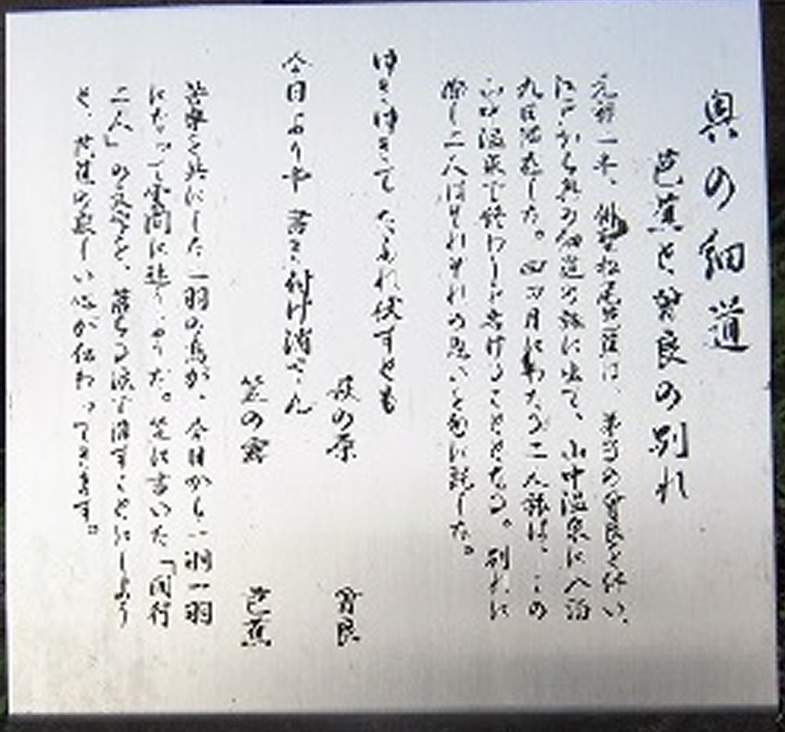 奥の細道
芭蕉と曽良の別れ
元禄二年、俳聖松尾芭蕉は、弟子の曽良を伴い、
江戸から奥の細道の旅に出て、山中温泉に八泊
九日滞在した。四ヵ月にわたる二人旅は、この
山中温泉で終わりを告げることとなる。別れに
際し二人はそれぞれの思いを句に託した。
ゆきゆきてたふれ伏すとも
萩の原 曽良
今日よりや書き付け消さん
笠の露 芭蕉
苦楽を共にした二羽の鳥が、今日から一羽一羽
になって雲間に迷うようだ。笠に書いた「同行
二人」の文字を、落ちる涙で消すことにしよう
と、芭蕉の悲しい心が伝わってきます。